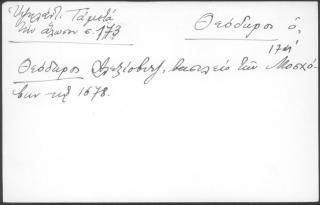 Ὑψηλάντ. Τὰ μετὰ
τὴν ἅλωσιν σ. 173
Θεόδωρος ὁ,
17ος
Θεόδωρος Ἀλεξίοβιτζ, βασιλεὺς τῶν Μοσχό-
βων 1678.